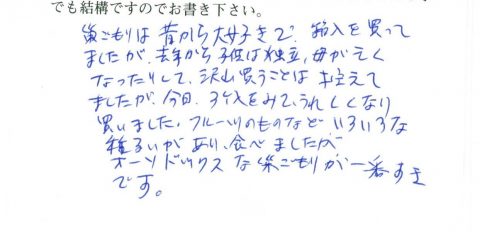 でも結構ですのでお書き下さい。
巣ごもりは昔から大好きで、箱入を買って
ましたが、去年から子供は独立、母が亡く
なったりして、沢山買うことは控えて
ましたが、今日、3ケ入をみて、うれしくなり
買いました。フルーツのものなど、いろいろな
種るいがあり、食べましたが、
オーソドックスな巣ごもりが一番すき
です。